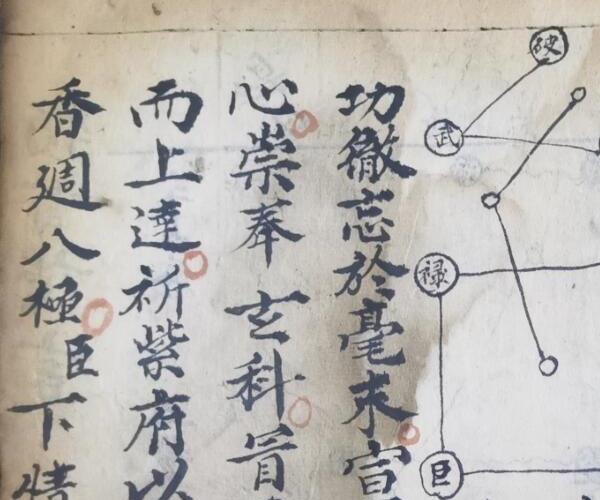 破
武
禄
巨
功徹忘於毫末
心崇奉玄科
而上達祈紫府以
香週八極臣下情